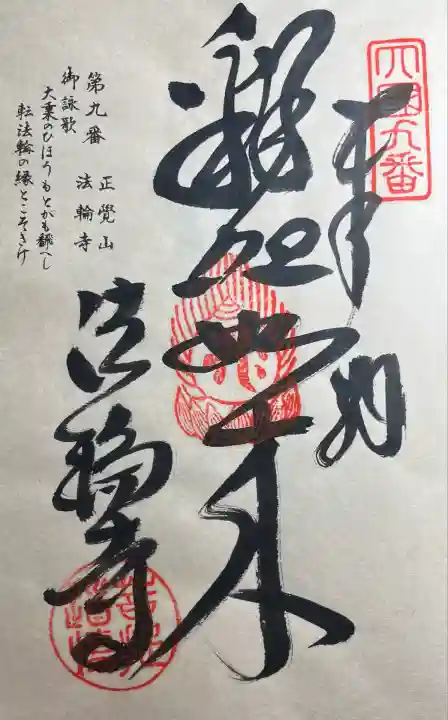 四国九番
奉納
釈迦如来
法輪寺
第九番 正覺山 法輪寺
御詠歌
大乗のひほうもとがも飜へし
転法輪の縁とこそきけ